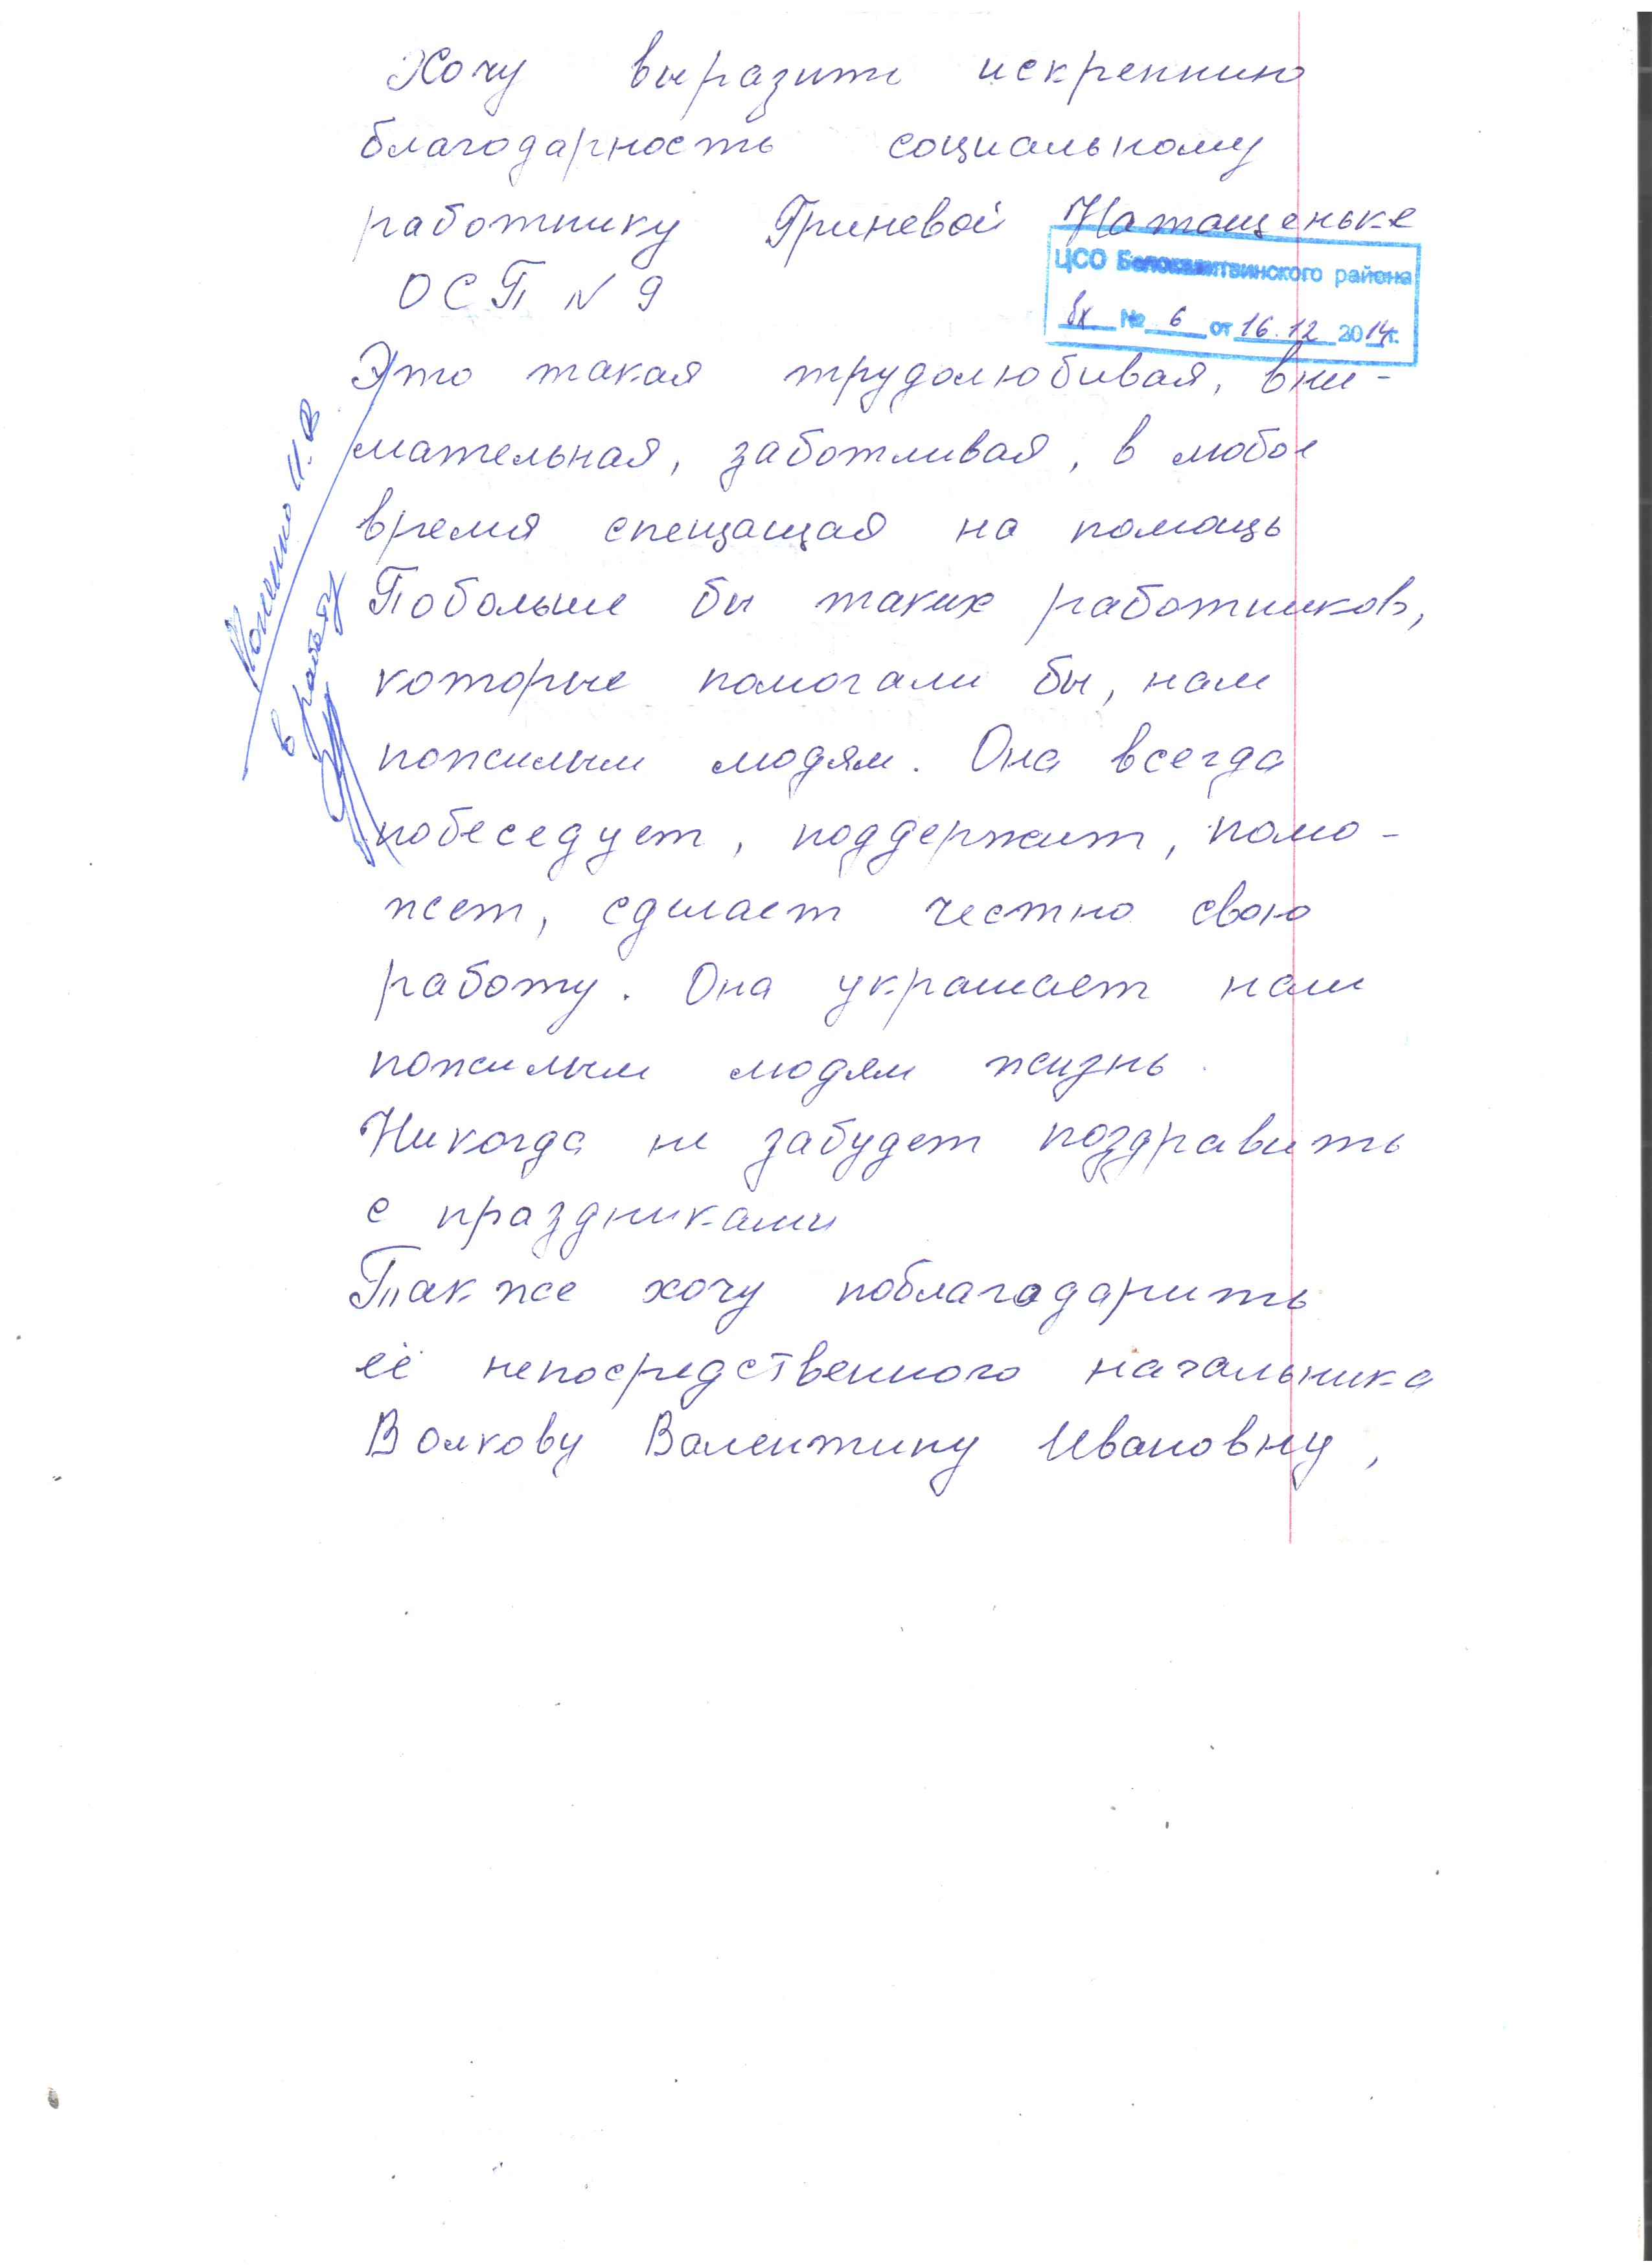 Хочу выразить искреннию
благодарность социальному
работнику Гриневой Наташеньке
ОСП N 9
ЦСО Белокалитвинского района
Вх. № 6 от 16.12 2014г.
Это такая трудолюбивая, вни-
мательная, заботливая, в любое
время спещащая на помощь
Побольше бы таких работников,
которые помогали бы, нам
пожилым людям. Она всегда
побеседует, поддержит, помо-
жет, сделает честно свою
работу. Она украшает нам
пожилым людям жизнь.
Никогда не забудет поздравить
с праздниками
Так же хочу поблагодарить
её непосредственного начальника
Волкову Валентину Ивановну,
в работу